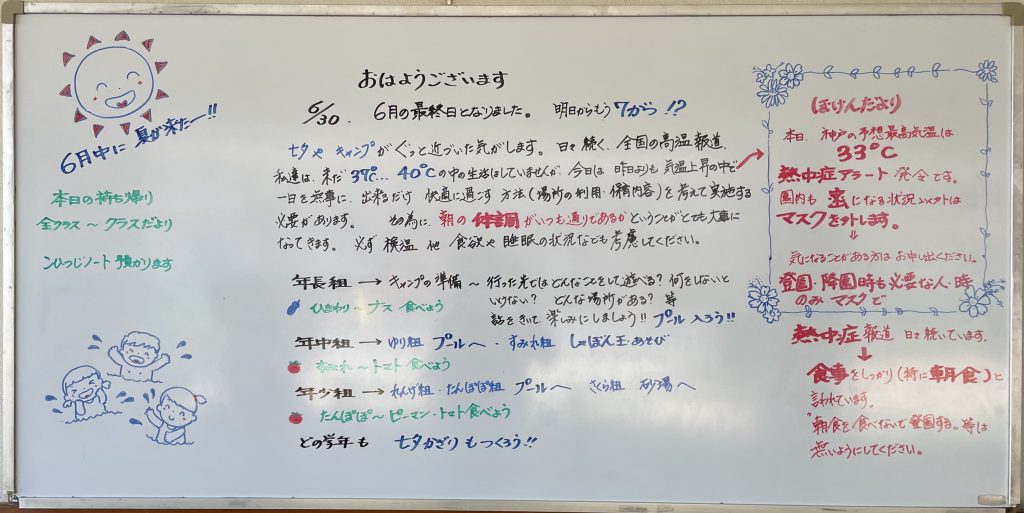 6月中に 夏が来たー!!
本日の持ち帰り
全クラス〜クラスだより
こひつじノート 預かります
おはようございます
6/30. 6月の最終日となりました。 明日からもう 7がつ !?
七夕や キャンプがぐっと近づいた気がします。日々続く、全国の高温報道.
私達は、未だ37℃… 40℃の中の生活はしていませんが、今日は 昨日よりも 気温上昇の中で
一日を無事に、出来るだけ 快適に過ごす 方法(場所の利用・保育内容)を考えて実施する
必要があります。 その為に、朝の体調がいつも通りであるかということがとても大事に
なってきます。 必ず 検温 他 食欲や 睡眠の状況なども考慮してください。
年長組 → キャンプの準備 〜 行った先では どんなことをして遊べる? 何をしないと
いけない? どんな場所がある? 等
ひまわり〜ナス 食べよう
話をきいて 楽しみにしましょう!! プール 入ろう!!
年中組 → ゆり組 プールへ ・ すみれ組 しゃぼん玉・あそび
すみれ〜トマト 食べよう
年少組 → れんげ組・たんぽぽ組 プールへ さくら組 砂場へ
たんぽぽ〜ピーマン・トマト食べよう
どの学年も 七夕かざりもつくろう!!
ほけんだより
本日、神戸の予想最高気温は
33℃
熱中症アラート 発令です。
園内も 密になる状況 以外は
マスクを外します。
気になることがある方は お申し出ください。
登園・降園時も必要な人・時
のみ マスクで
熱中症 報道 日々続いています.
食事をしっかり(特に朝食)と
言われています。
"朝食を食べないで登園する" 等は
無いようにしてください。